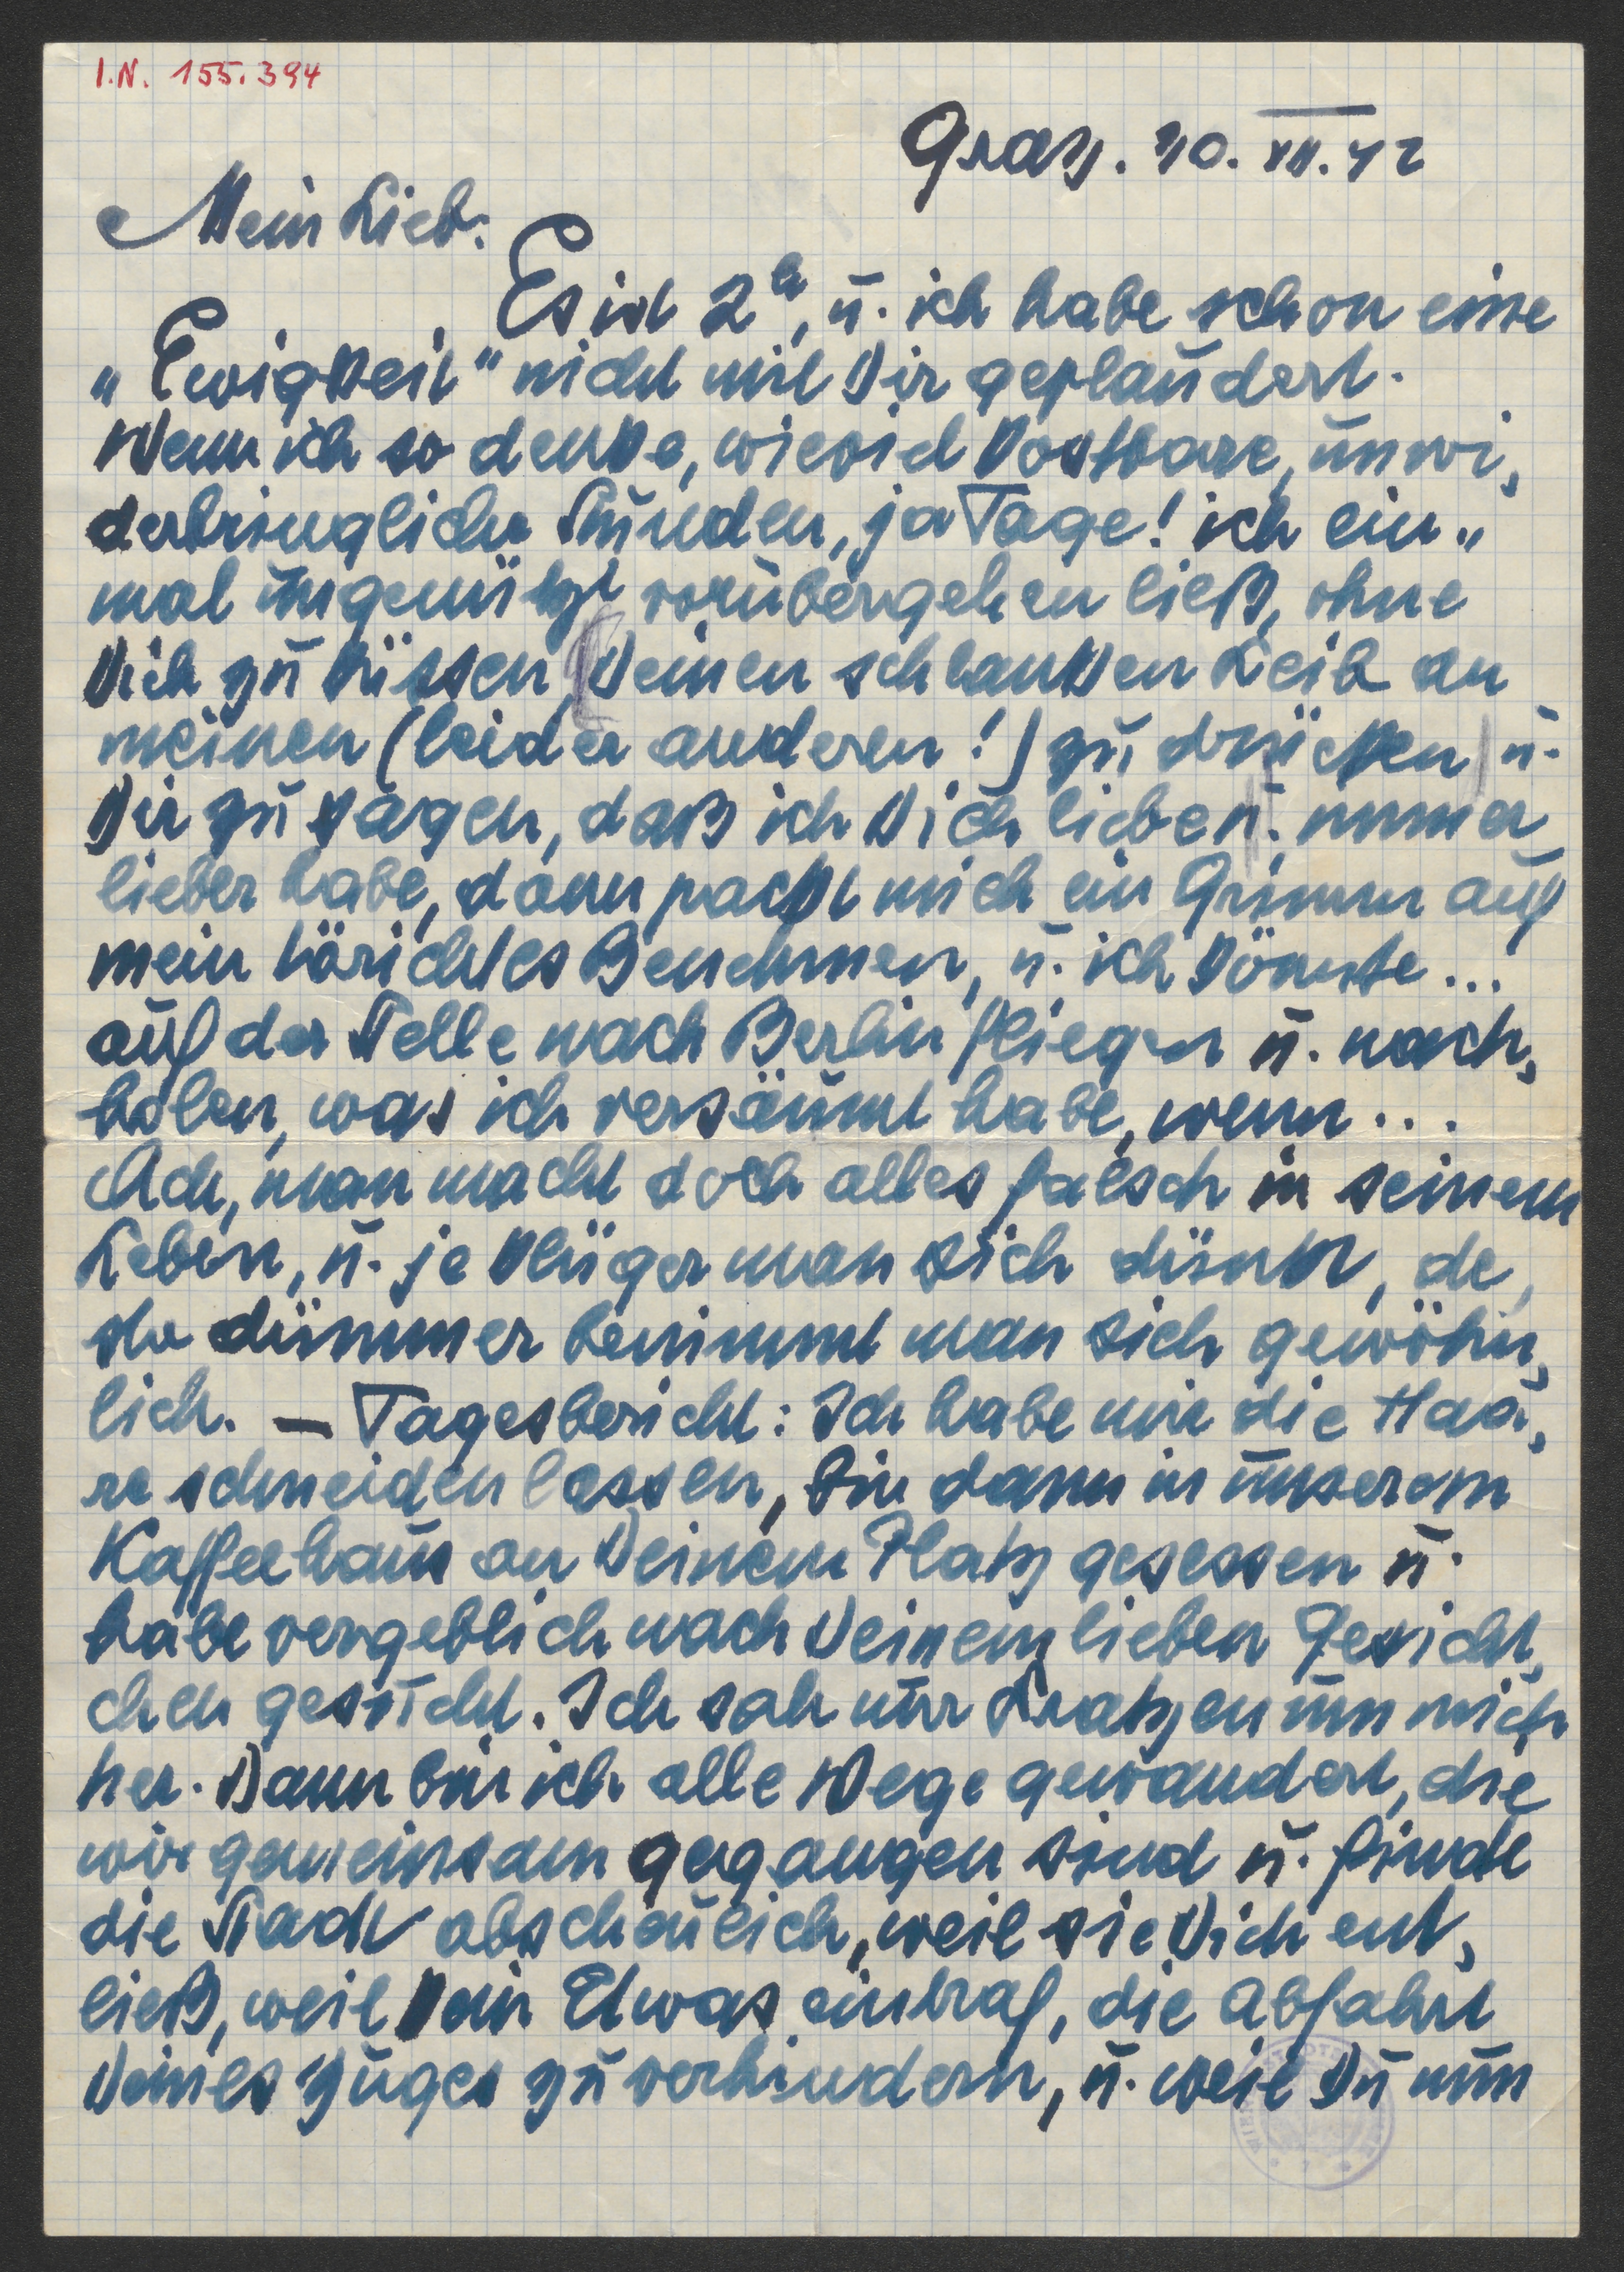 I.N. 155.394
Graz. 30. XII. 42
Mein Lieb:
Es ist 2h, u. ich habe schon eine
„Ewigkeit" nicht mit Dir geplaudert.
Wenn ich so denke, wieviel kostbare, unwi„
derbringliche Stunden, ja Tage! ich ein„
mal ungenützt vorübergehen ließ, ohne
Dich zu küssen, Deinen schlanken Leib an
meinen (leider anderen!) zu drücken u.
Dir zu sagen, daß ich Dich liebe u. immer
lieber habe, dann packt mich ein Grimm auf
mein törichtes Benehmen, u. ich könnte...
auf der Stelle nach Berlin fliegen u. nach„
holen, was ich versäumt habe, wenn...
Ach, man macht doch alles falsch in seinem
Leben, u. je klüger man sich dünkt, de„
sto dümmer benimmt man sich gewöhn„
lich. – Tagesbericht: Ich habe mir die Haa„
re schneiden lassen, bin dann in unserem
Kaffeehaus an Deinem Platz gesessen u.
habe vergeblich nach Deinem lieben Gesicht„
chen gesucht. Ich sah nur Fratzen um mich
her. Dann bin ich alle Wege gewandert, die
wir gemeinsam gegangen sind u. finde
die Stadt abscheulich, weil sie Dich ent„
ließ, weil kein Etwas eintraf, die Abfahrt
Deines Zuges zu verhindern, u. weil Du nun